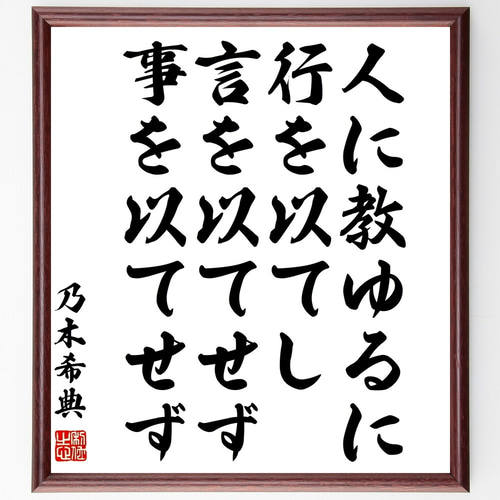 人に教ゆるに
行を以てし
言を以てせず
事を以てせず
乃木希典